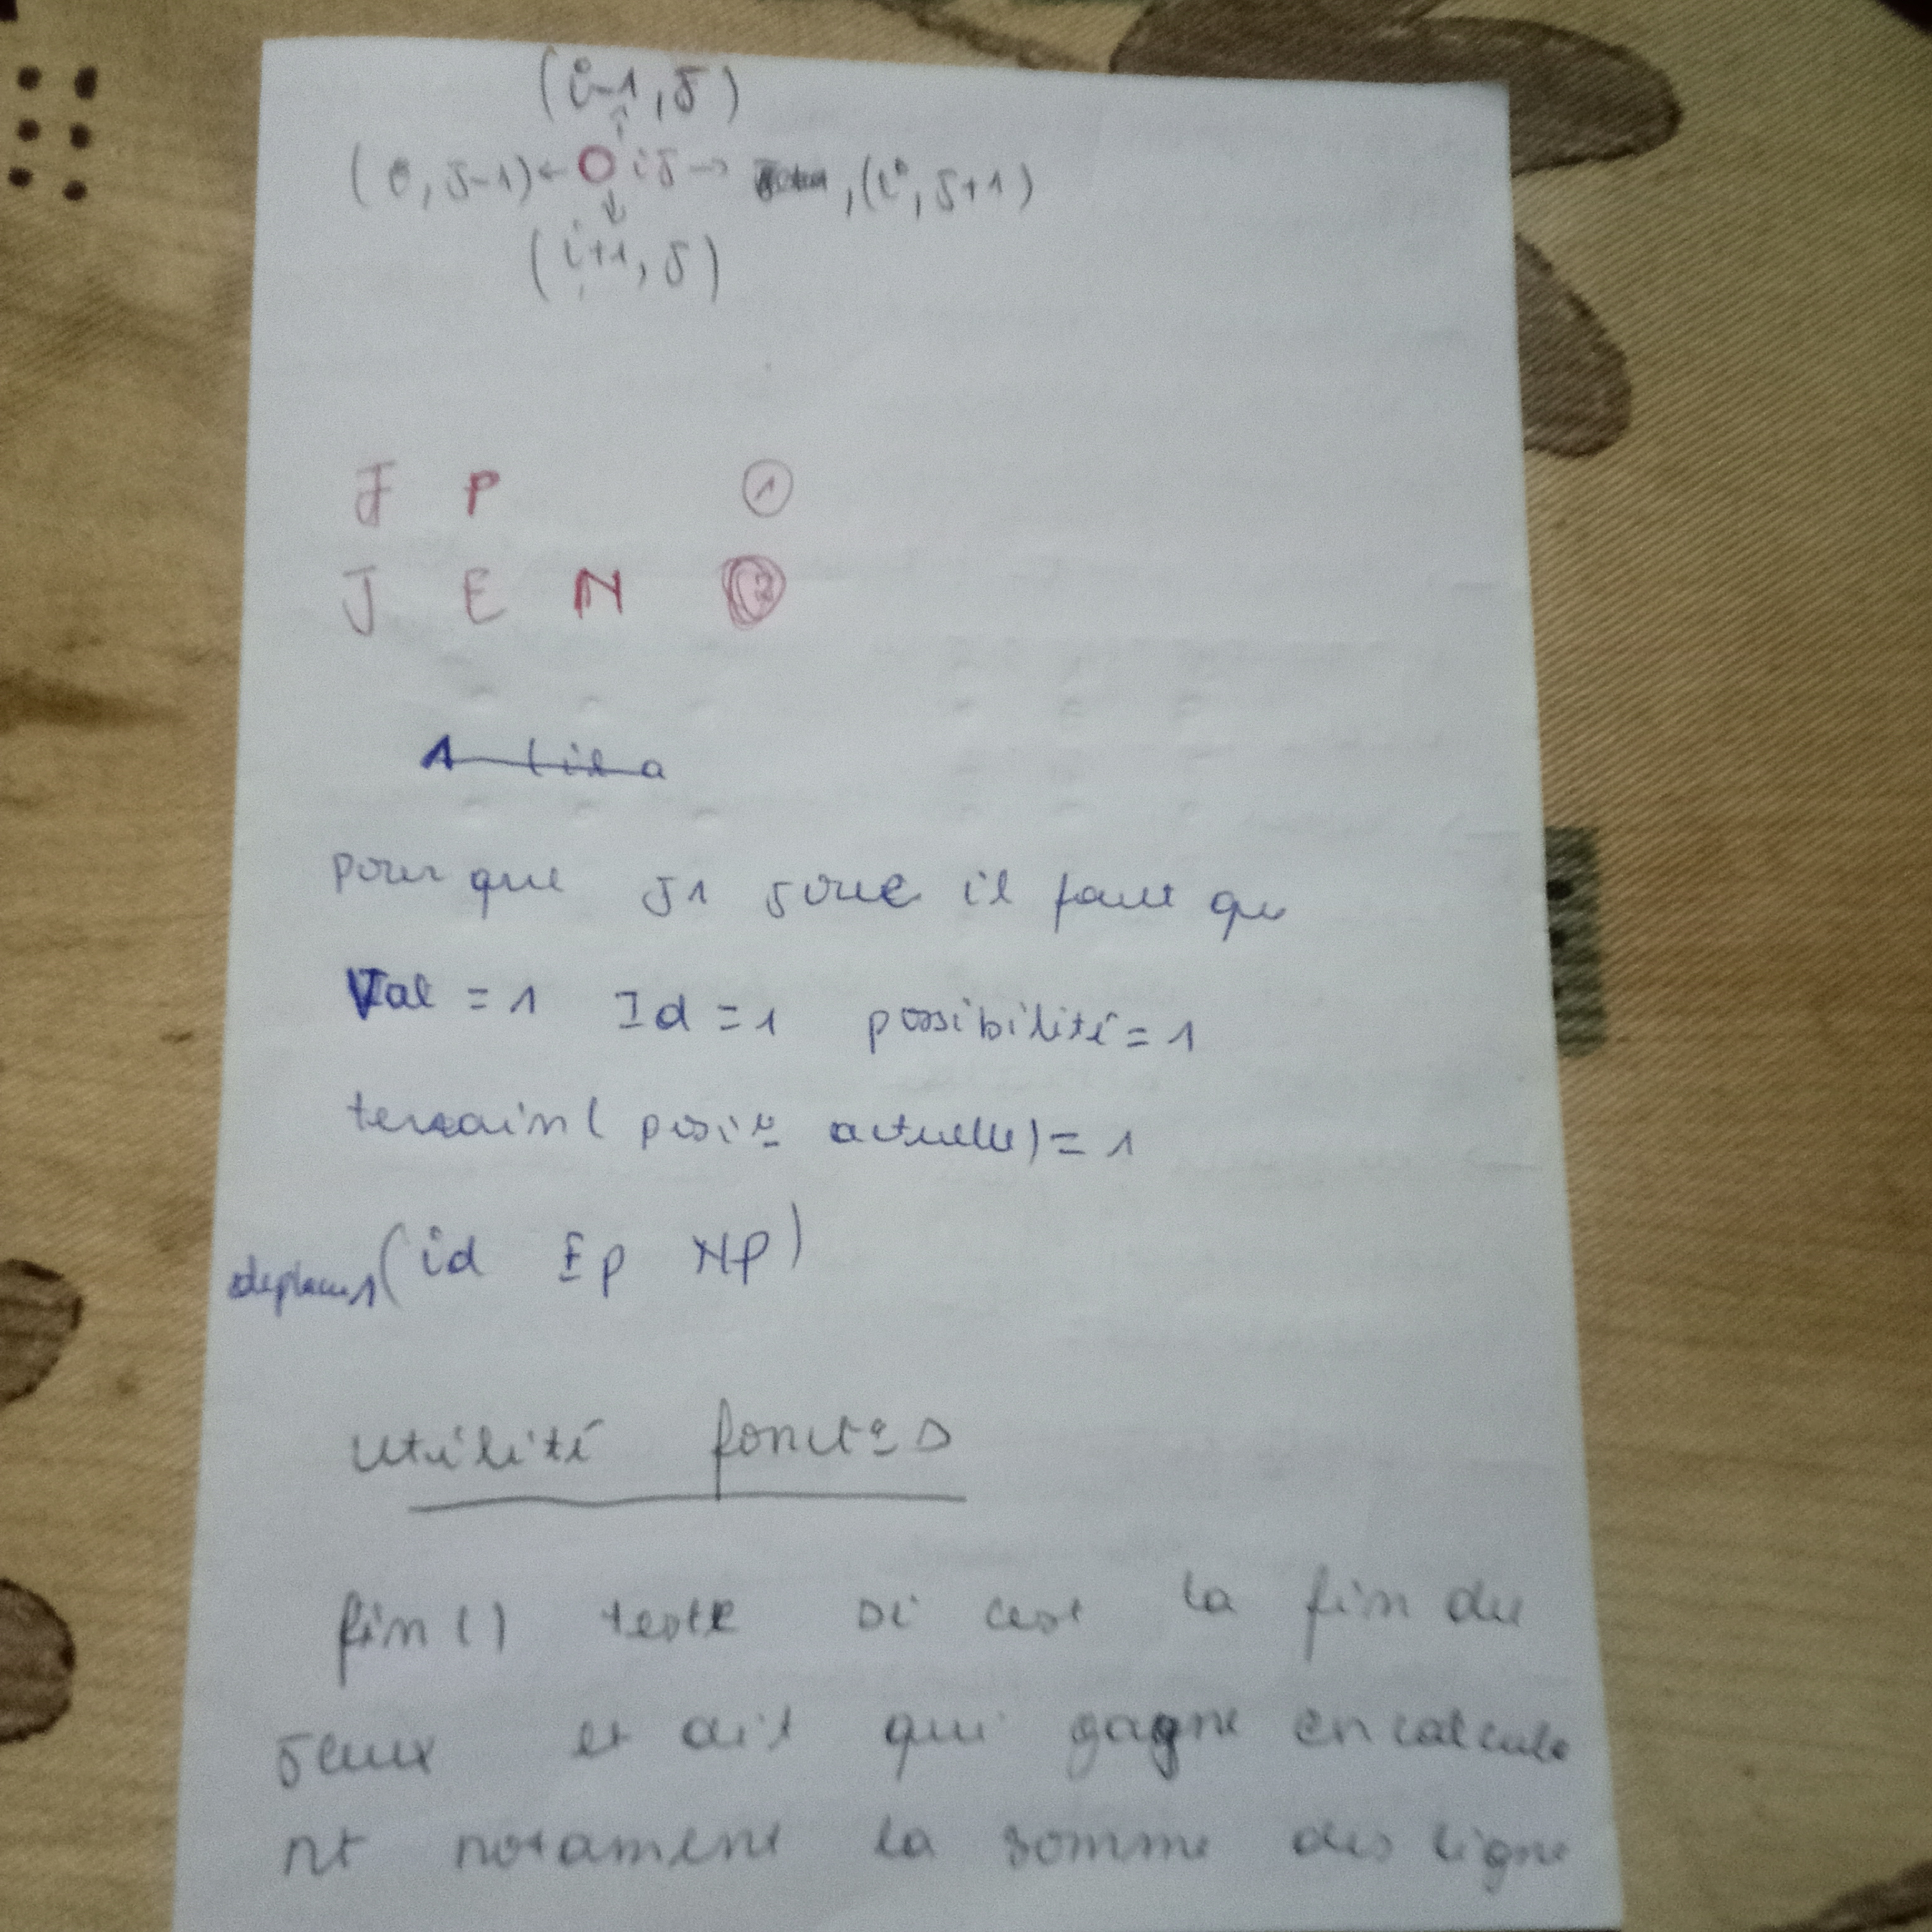 (i-1, j)
(i, j-1) ← O ij → , (i, j+1)
(i+1, j)
J P 1
J E N 2
pour que J1 joue il faut que
Val = 1 Id = 1 possibilité = 1
terrain( posi° actuelle) = 1
(id Ep NP)
utilité fonct° s
fin() teste si cest la fin du
jeux et dit qui gagne en calcula
nt notament la somme des ligne